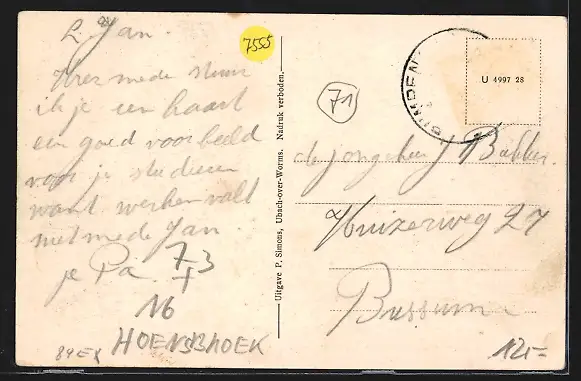 L. Jan.
Hier mede stuur
ik je een kaart
een goed voorbeeld
voor je studieen
want werken valt
niet mede Jan.
je Pa. 73
16
HOENSBROEK
89EX
7555
Uitgave P. Simons, Ubach-over-Worms. Nadruk verboden.
71
U 4997 28
de jongeheer J Bakker.
Huizerweg 27
Bussum
125-